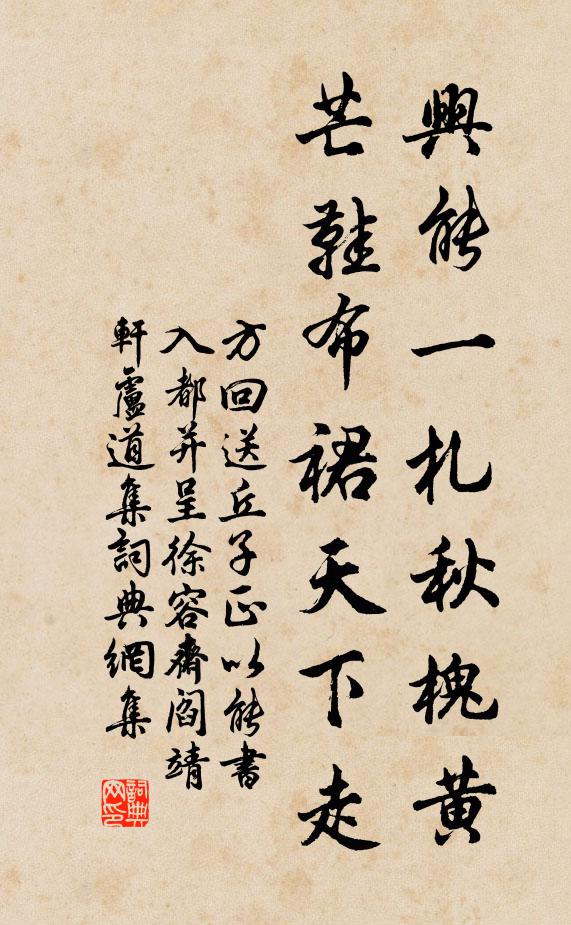 興能一札秋槐黄
芒鞋布裙天下走
方回送丘子正以能書
入都并呈徐容齋閻靖
軒盧道集詞典網集
詞典网印